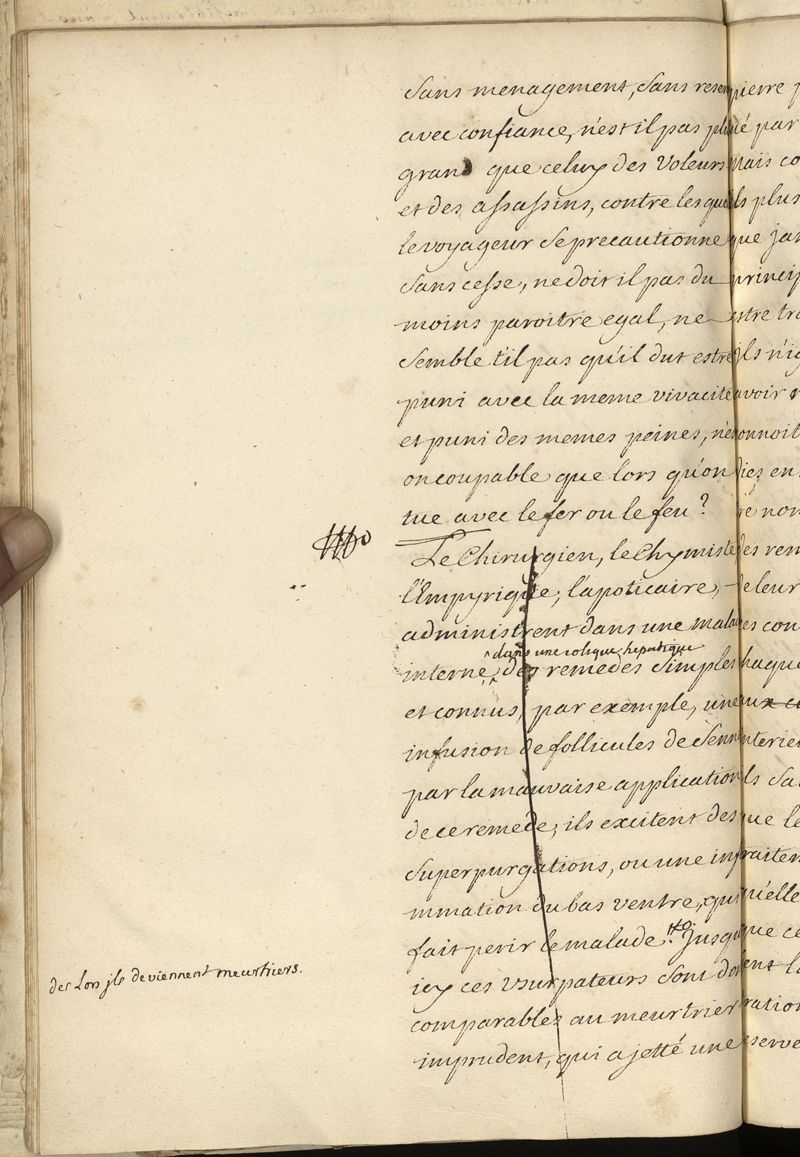 Sans menagement, sans reserv
avec confiance, n'est il pas plu
grand que celuy des Voleurs
et des assassins, contre lesquels
le voyageur se precautionne
sans cesse, ne doit il pas du
moins paroitre egal, ne
semble t'il pas qu'il dut estre
puni avec la meme vivacité
et puni des memes peines, n'e
on coupable que lors qu'on
tue avec le fer ou le feu?
Le Chirurgien, le Chymiste
l'Empyrique, l'apoticaire,
administrent dans une malad
dans une colique hepatique
interne, des remedes simples
et connus, par exemple, une
infusion de follicules de Senné
par la mauvaise application
de ce remede; ils excitent des
superpurgations, ou une infla
mmation du bas ventre, qui
fait perir le malade. Jusqu
des Lors jls deviennent meurtriers.
icy ces usurpateurs sont do
comparables au meurtrier
imprudent, qui a jetté une
pierre p
ué par
mais co
ils plus
que ja
princip
estre tr
ils n'ig
avoir
connoit
diez en
re non
des rem
de leur
es con
haque
aux
nterieu
ls sa
que le
traitem
qu'elle
que ce
ent l
ration
eserve